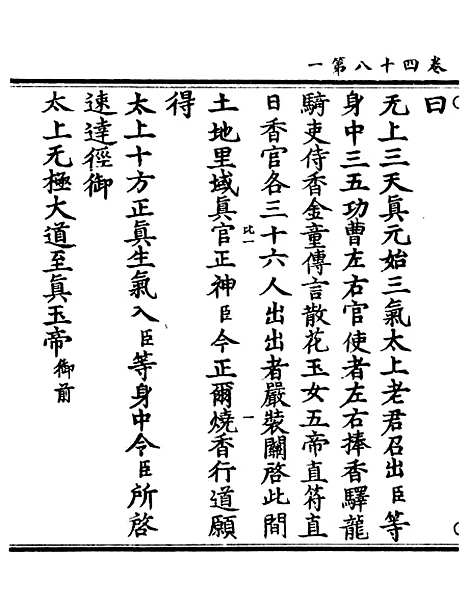 卷四十八第一
曰
无上三天真元始三氣太上老君召出臣等
身中三五功曹左右官使者左右捧香驛龍
騎吏侍香金童傳言散花玉女五帝直符直
日香官各三十六人出出者嚴裝關啓此間
土地里域真官正神臣今正爾燒香行道願
得
太上十方正真生氣入臣等身中令臣所啓
速達徑御
太上无極大道至真玉帝御前